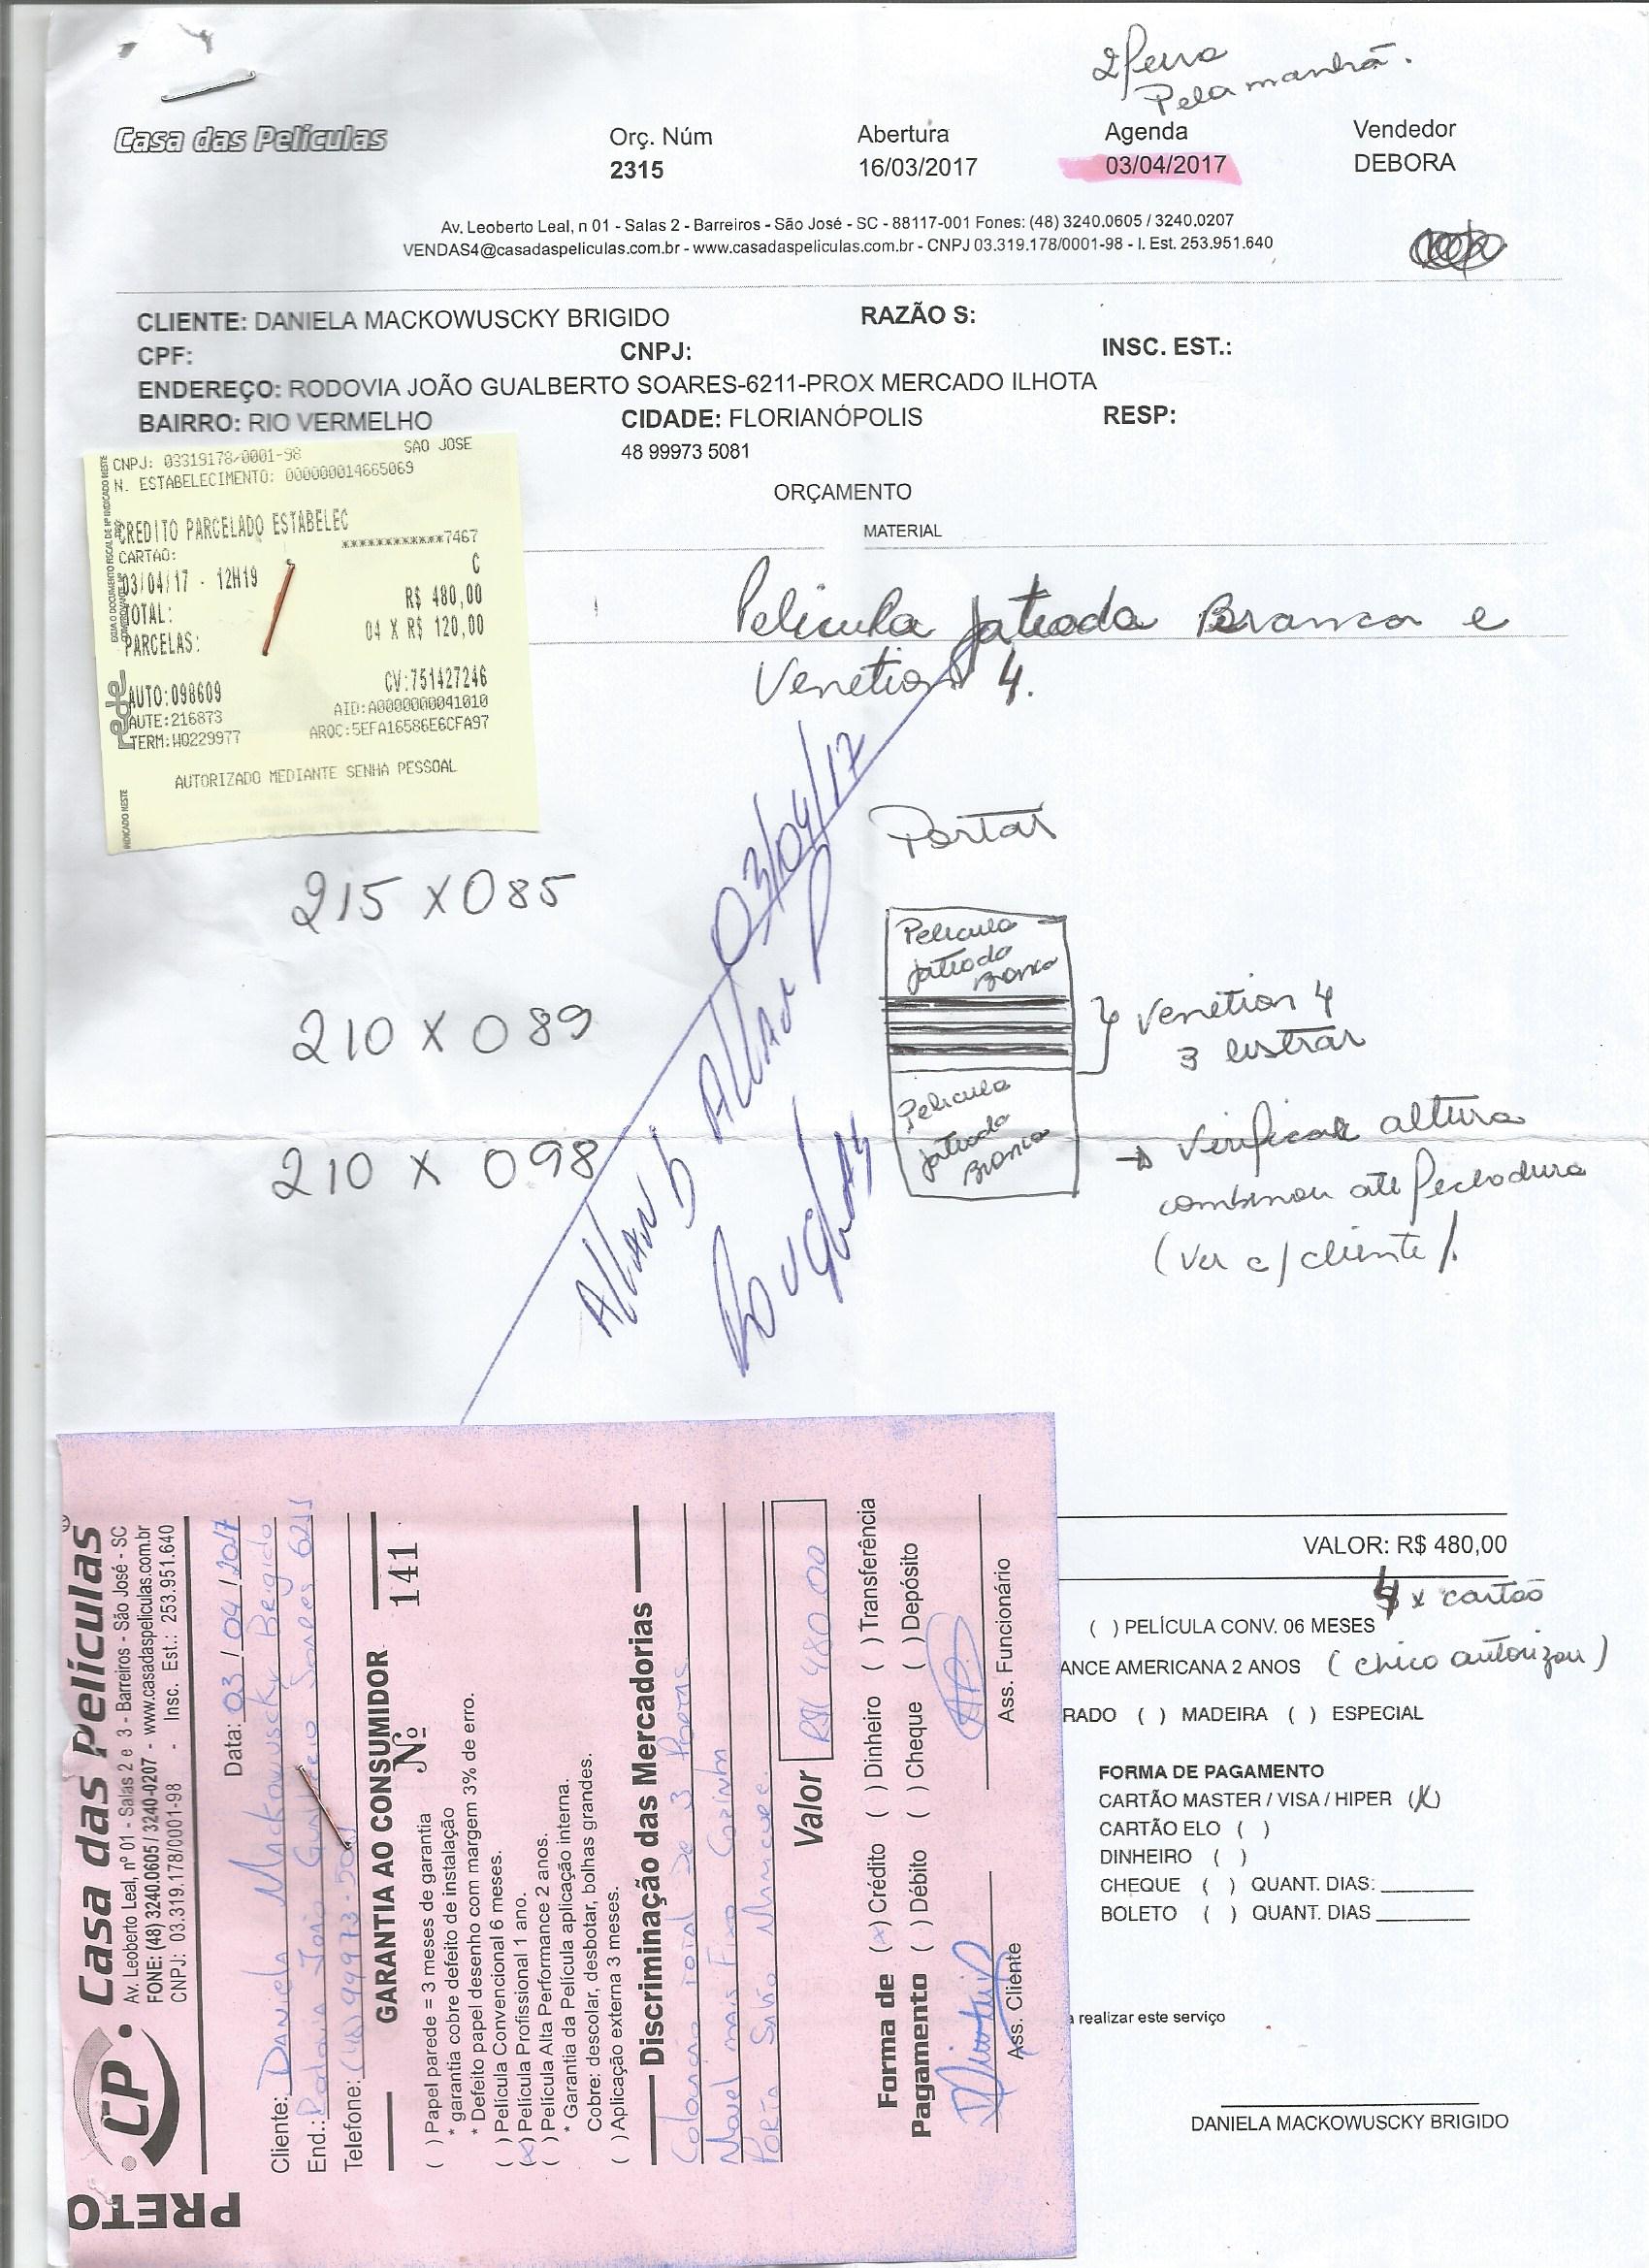 2ª feira
Pela manhã.
Casa das Películas
Orç. Núm
2315
Abertura
16/03/2017
Agenda
03/04/2017
Vendedor
DEBORA
Av. Leoberto Leal, n 01 - Salas 2 - Barreiros - São José - SC - 88117-001 Fones: (48) 3240.0605 / 3240.0207
VENDAS4@casadaspeliculas.com.br - www.casadaspeliculas.com.br - CNPJ 03.319.178/0001-98 - I. Est. 253.951.640
CLIENTE: DANIELA MACKOWUSCKY BRIGIDO RAZÃO S:
CPF: CNPJ: INSC. EST.:
ENDEREÇO: RODOVIA JOÃO GUALBERTO SOARES-6211-PROX MERCADO ILHOTA
BAIRRO: RIO VERMELHO CIDADE: FLORIANÓPOLIS RESP:
48 99973 5081
ORÇAMENTO
MATERIAL
CNPJ: 03319178/0001-98 SAO JOSE
N. ESTABELECIMENTO: 000000014665069
CREDITO PARCELADO ESTABELEC
CARTAO: ************7467
C
03/04/17 - 12H19
TOTAL: R$ 480,00
PARCELAS: 04 X R$ 120,00
CV:751427246
AUTO:098609
AID:A0000000041010
AUTE:216873
TERM:WQ229977 ARQC:5EFA16586E6CFA97
AUTORIZADO MEDIANTE SENHA PESSOAL
rede
INDICADO NESTE
Película Jateada Branca e
Venetian 4.
Portas
215 x 085
210 x 089
210 x 098
Película
Jateada
Branca
Venetian 4
3 listras
Película
Jateada
Branca
Verificar altura
combinou até fechadura
(ver c/ cliente).
03/04/17
Allan
Allan
Douglas
VALOR: R$ 480,00
4 x cartão
( ) PELÍCULA CONV. 06 MESES
ANCE AMERICANA 2 ANOS (chico autorizou)
RADO ( ) MADEIRA ( ) ESPECIAL
FORMA DE PAGAMENTO
CARTÃO MASTER / VISA / HIPER (X)
CARTÃO ELO ( )
DINHEIRO ( )
CHEQUE ( ) QUANT. DIAS:
BOLETO ( ) QUANT. DIAS
a realizar este serviço
DANIELA MACKOWUSCKY BRIGIDO
PRETO
CP
Casa das Películas
Av. Leoberto Leal, nº 01 - Salas 2 e 3 - Barreiros - São José - SC
FONE: (48) 3240.0605 / 3240-0207 - www.casadaspeliculas.com.br
CNPJ: 03.319.178/0001-98 - Insc. Est.: 253.951.640
Data: 03/04/2017
Cliente: Daniela Mackowuscky Brigido
End.: Rodovia João Gualberto Soares 6211
Telefone: (48) 99973-5081
GARANTIA AO CONSUMIDOR Nº 141
( ) Papel parede = 3 meses de garantia
* garantia cobre defeito de instalação
* Defeito papel desenho com margem 3% de erro.
( ) Película Convencional 6 meses.
(x) Película Profissional 1 ano.
( ) Película Alta Performance 2 anos.
* Garantia da Película aplicação interna.
Cobre: descolar, desbotar, bolhas grandes.
( ) Aplicação externa 3 meses.
Discriminação das Mercadorias
Colocação total de 3 Portas
Movel mais Fixo Cozinha
Porta
Valor R$ 480.00
Forma de Pagamento
(x) Crédito ( ) Dinheiro ( ) Transferência
( ) Débito ( ) Cheque ( ) Depósito
Ass. Cliente
Ass. Funcionário